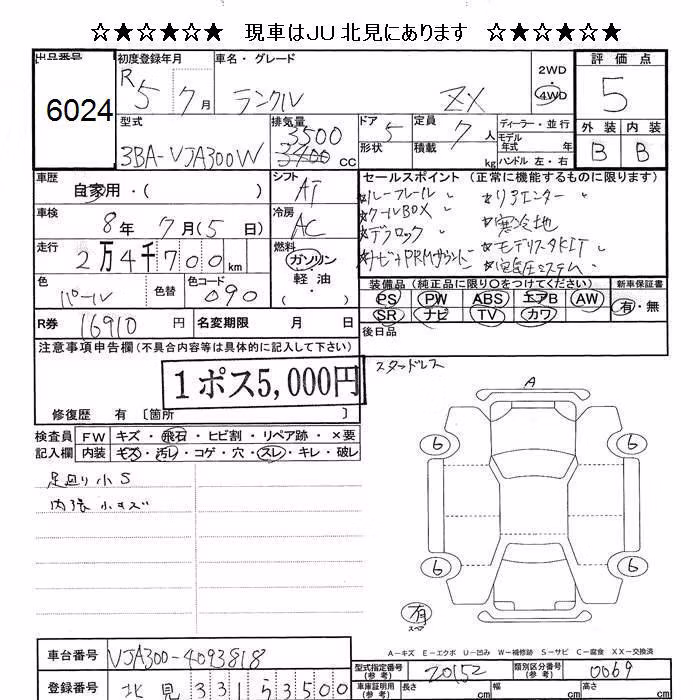 ☆★☆★☆★ 現車はJU北見にあります ☆★☆★☆★
出品番号 初度登録年月 車名・グレード 評価点
6024 R5 7月 ランクル ZX 2WD 4WD 5
型式 排気量 ドア 定員 ディーラー・並行 外装 内装
3BA-VJA300W 3500 3400 CC 5 7人 モデル年式 年 B B
形状 積載 kg ハンドル 左・右
車歴 シフト セールスポイント (正常に機能するものに限ります)
自家用・( ) AT ☆ルーフレール 〃 ☆リアエンター 〃
車検 冷房 ☆クールBOX 〃 ☆寒冷地
8年 7月(5日) AC ☆デフロック ☆モデリスタKIT 〃
走行 燃料 ☆ナビ+PRMサウンド ☆空気圧システム 〃
2万4千700km ガソリン・軽油・( )
色 色替 色コード 装備品 (純正品に限り○をつけてください) 新車保証書
パール 090 PS PW ABS エアB AW 有・無
R券 16910円 名変期限 月 日 SR ナビ TV カワ
注意事項申告欄 (不具合内容等は具体的に記入して下さい) 後日品
スタッドレス
1ポス5,000円
修復歴 有〔箇所 〕
検査員 FW キズ・飛石・ヒビ割・リペア跡・×要
記入欄 内装 キズ・汚レ・コゲ・穴・スレ・キレ・破レ
足廻り小S
内張小キズ
A
6 6
6 6
有
スペア
A-キズ E-エクボ U-凹み W-補修跡 S-サビ C-腐食 XX-交換済
車台番号 VJA300-4093818
型式指定番号 (参考) 20152 類別区分番号 (参考) 0069
登録番号 北見 331 ら 3500
車庫証明用 (参考) 長さ cm 幅 cm 高さ cm